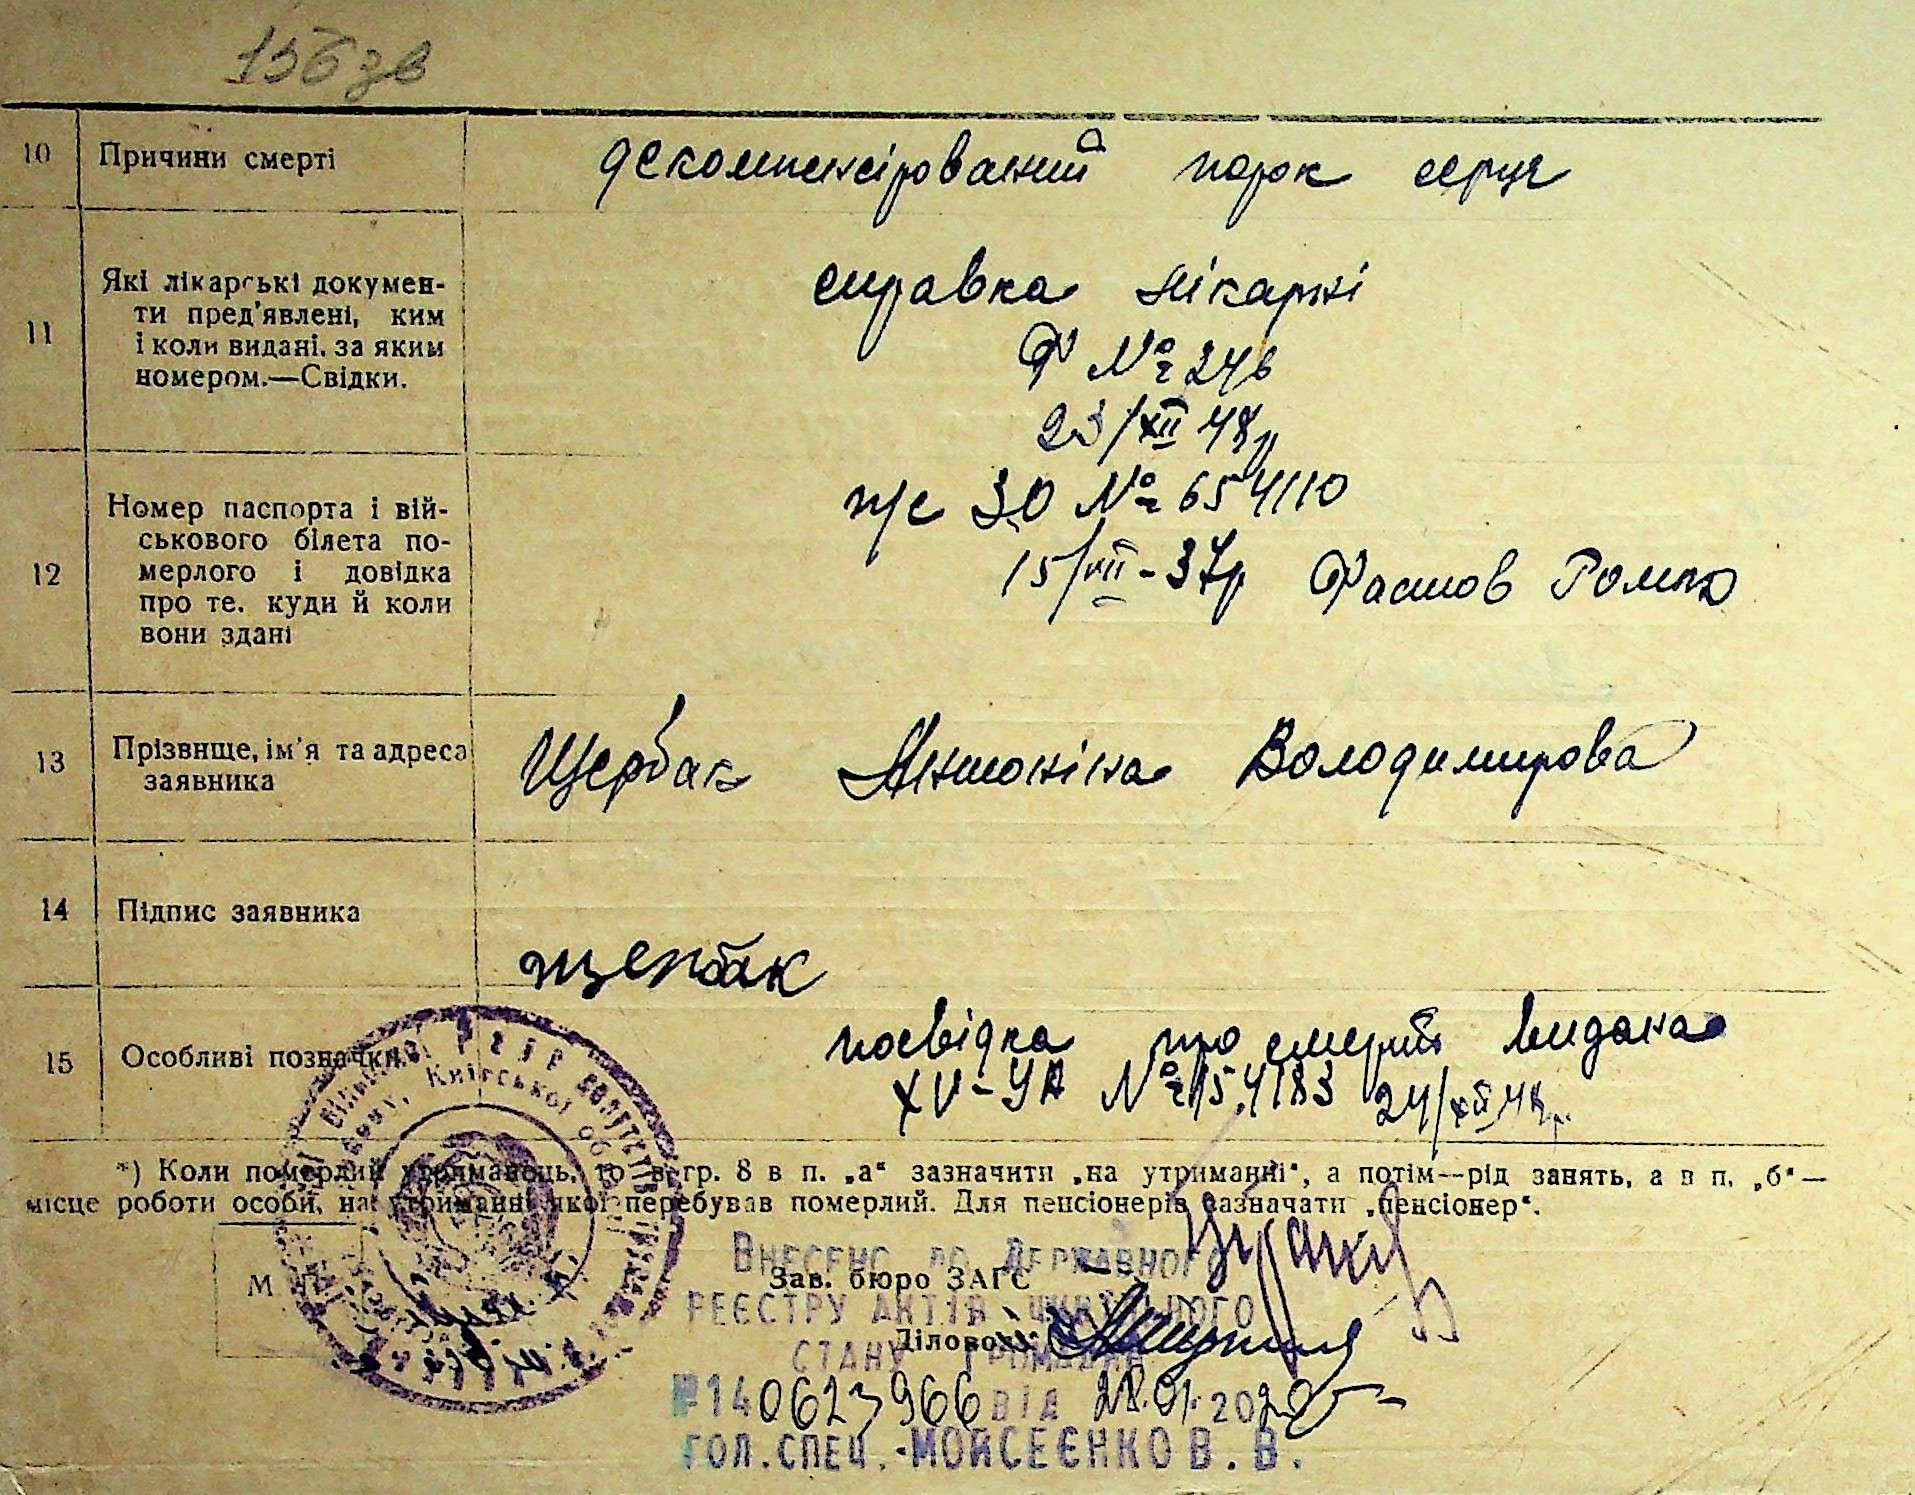 156 зв
10 Причини смерті
декомпенсірований порок серця
11 Які лікарські докумен-
ти пред'явлені, ким
і коли видані, за яким
номером.—Свідки.
справка лікарні
Ф № 246
23/XII 48р
12 Номер паспорта і вій-
ськового білета по-
мерлого і довідка
про те, куди й коли
вони здані
п/с ЗО № 654110
15/VII-37р Фастов
13 Прізвище, ім'я та адреса
заявника
Щербак Антоніна Володимирова
14 Підпис заявника
щербак
15 Особливі позначки
посвідка про смерть видана
XV-УА № 154183 24/XII 48р.
*) Коли помердий утриманець, то в гр. 8 в п. „а“ зазначити „на утриманні“, а потім—рід занять, а в п. „б“—
місце роботи особи, на утриманні якої перебував померлий. Для пенсіонерів зазначати „пенсіонер“.
М
Зав. бюро ЗАГС
Діловод
Київської
Внесено до Державного
реєстру актів цивільного
стану громадян
№140623966 від 28.01.2020
гол.спец.-Мойсеєнко В.В.